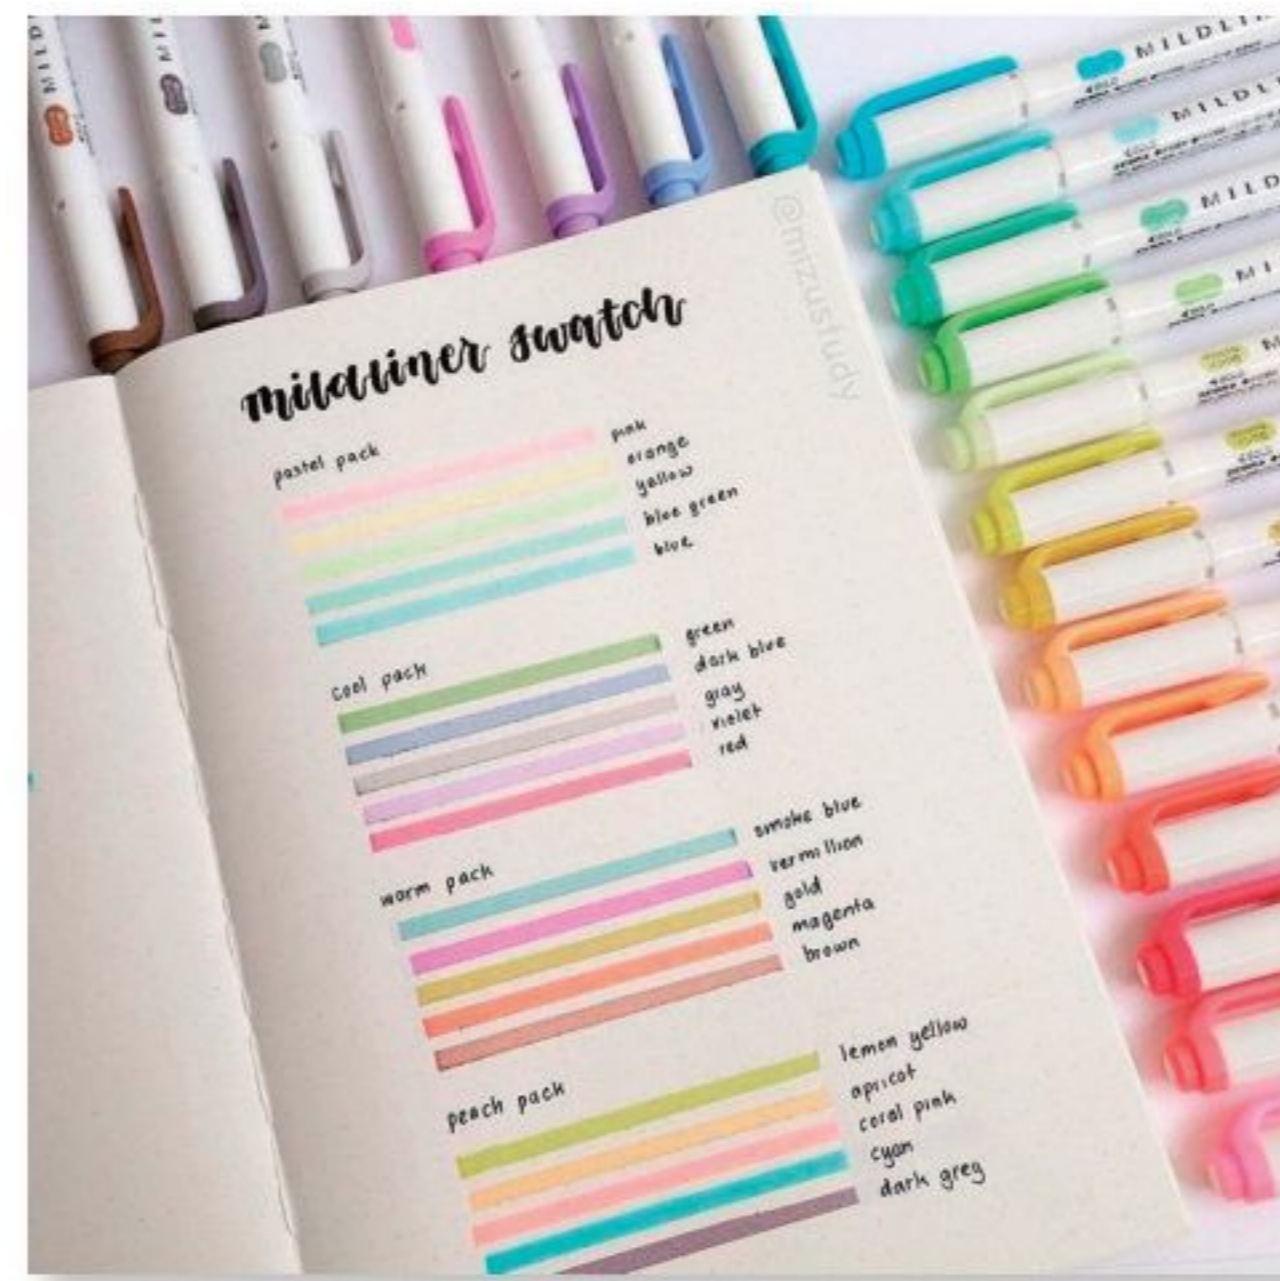 mildliner swatch
pastel pack
pink
orange
yellow
blue green
blue
cool pack
green
dark blue
gray
violet
red
warm pack
smoke blue
vermillion
gold
magenta
brown
peach pack
lemon yellow
apricot
coral pink
cyan
dark grey
@mizustudy
MILDLI
MILDLI
MILDL